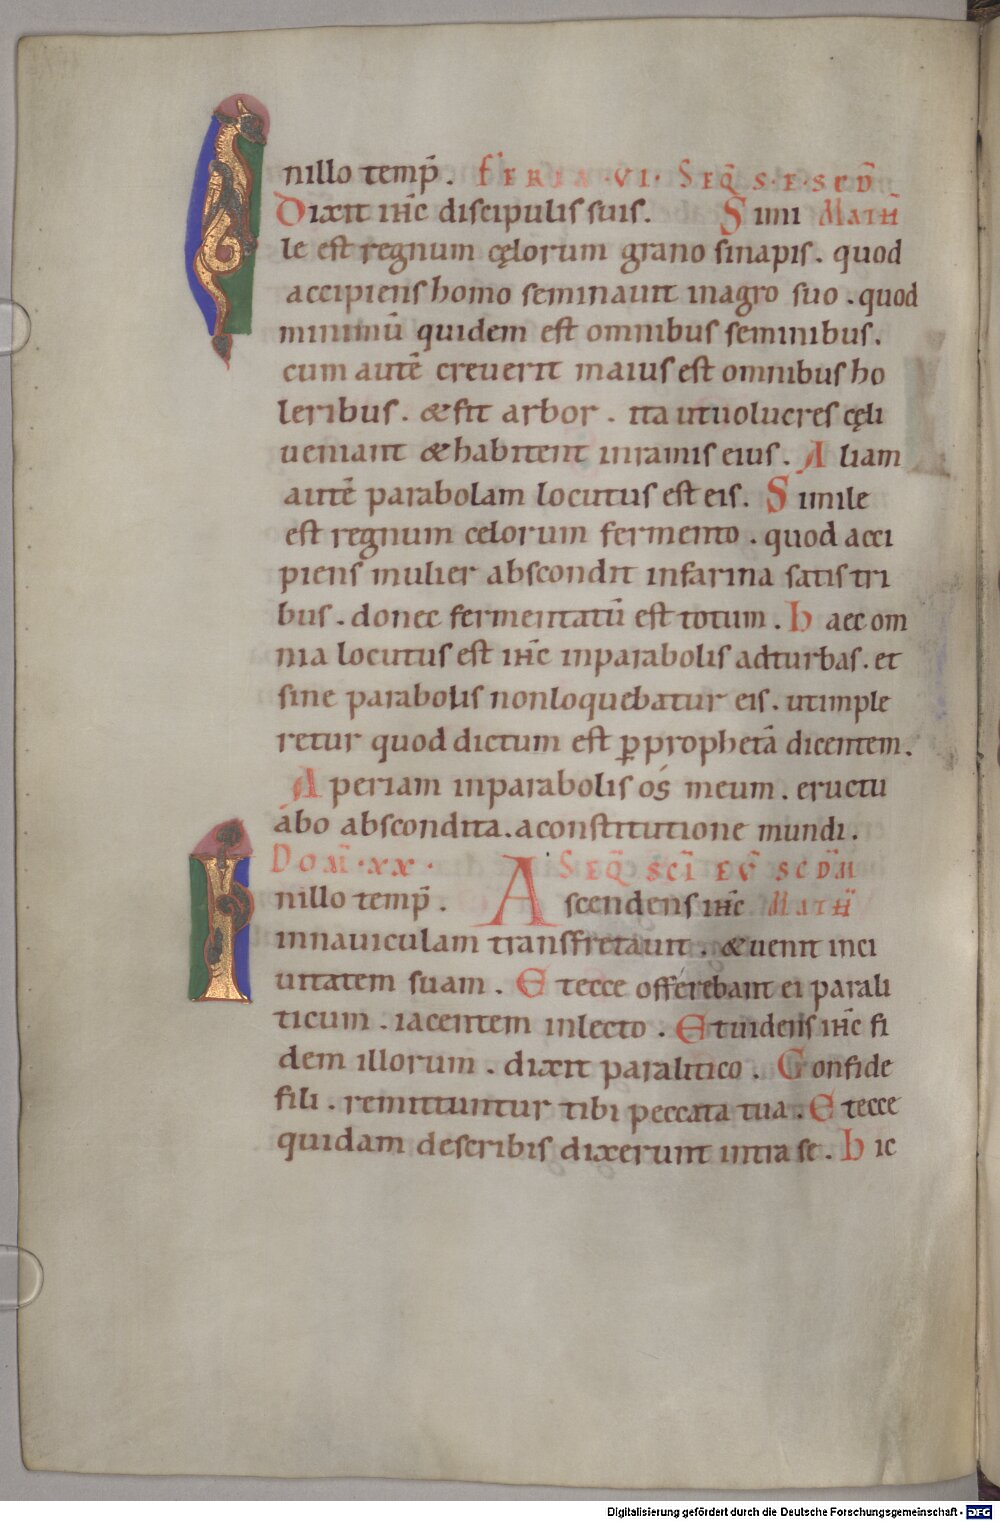 Inillo temp̄. FERIA·VI· SEQ̄·S·E·SCD̄
Dixit ih̄c discipulis suis. Simi MATH̄
le est regnum cęlorum grano sinapis. quod
accipiens homo seminauit inagro suo. quod
minimū quidem est omnibus seminibus.
cum autē creuerit maius est omnibus ho
leribus. & fit arbor. ita utuolucres cęli
ueniant & habitent inramis eius. Aliam
autē parabolam locutus est eis. Simile
est regnum celorum fermento. quod acci
piens mulier abscondit infarina satis tri
bus. donec fermentatū est totum. haec om
nia locutus est ih̄c inparabolis adturbas. et
sine parabolis nonloquebatur eis. utimple
retur quod dictum est ꝑ prophetā dicentem.
Aperiam inparabolis os meum. eructu
abo abscondita. aconstitutione mundi.
DOM̄·XX· SEQ̄ SC̄I EV̄ SCD̄M
Inillo temp̄. Ascendens ih̄c MATH̄
innauiculam transfretauit. & uenit inci
uitatem suam. Et ecce offerebant ei parali
ticum. iacentem inlecto. Et uidens ih̄c fi
dem illorum. dixit paralitico. Confide
fili. remittuntur tibi peccata tua. Et ecce
quidam describis dixerunt intra se. hic
Digitalisierung gefördert durch die Deutsche Forschungsgemeinschaft - DFG